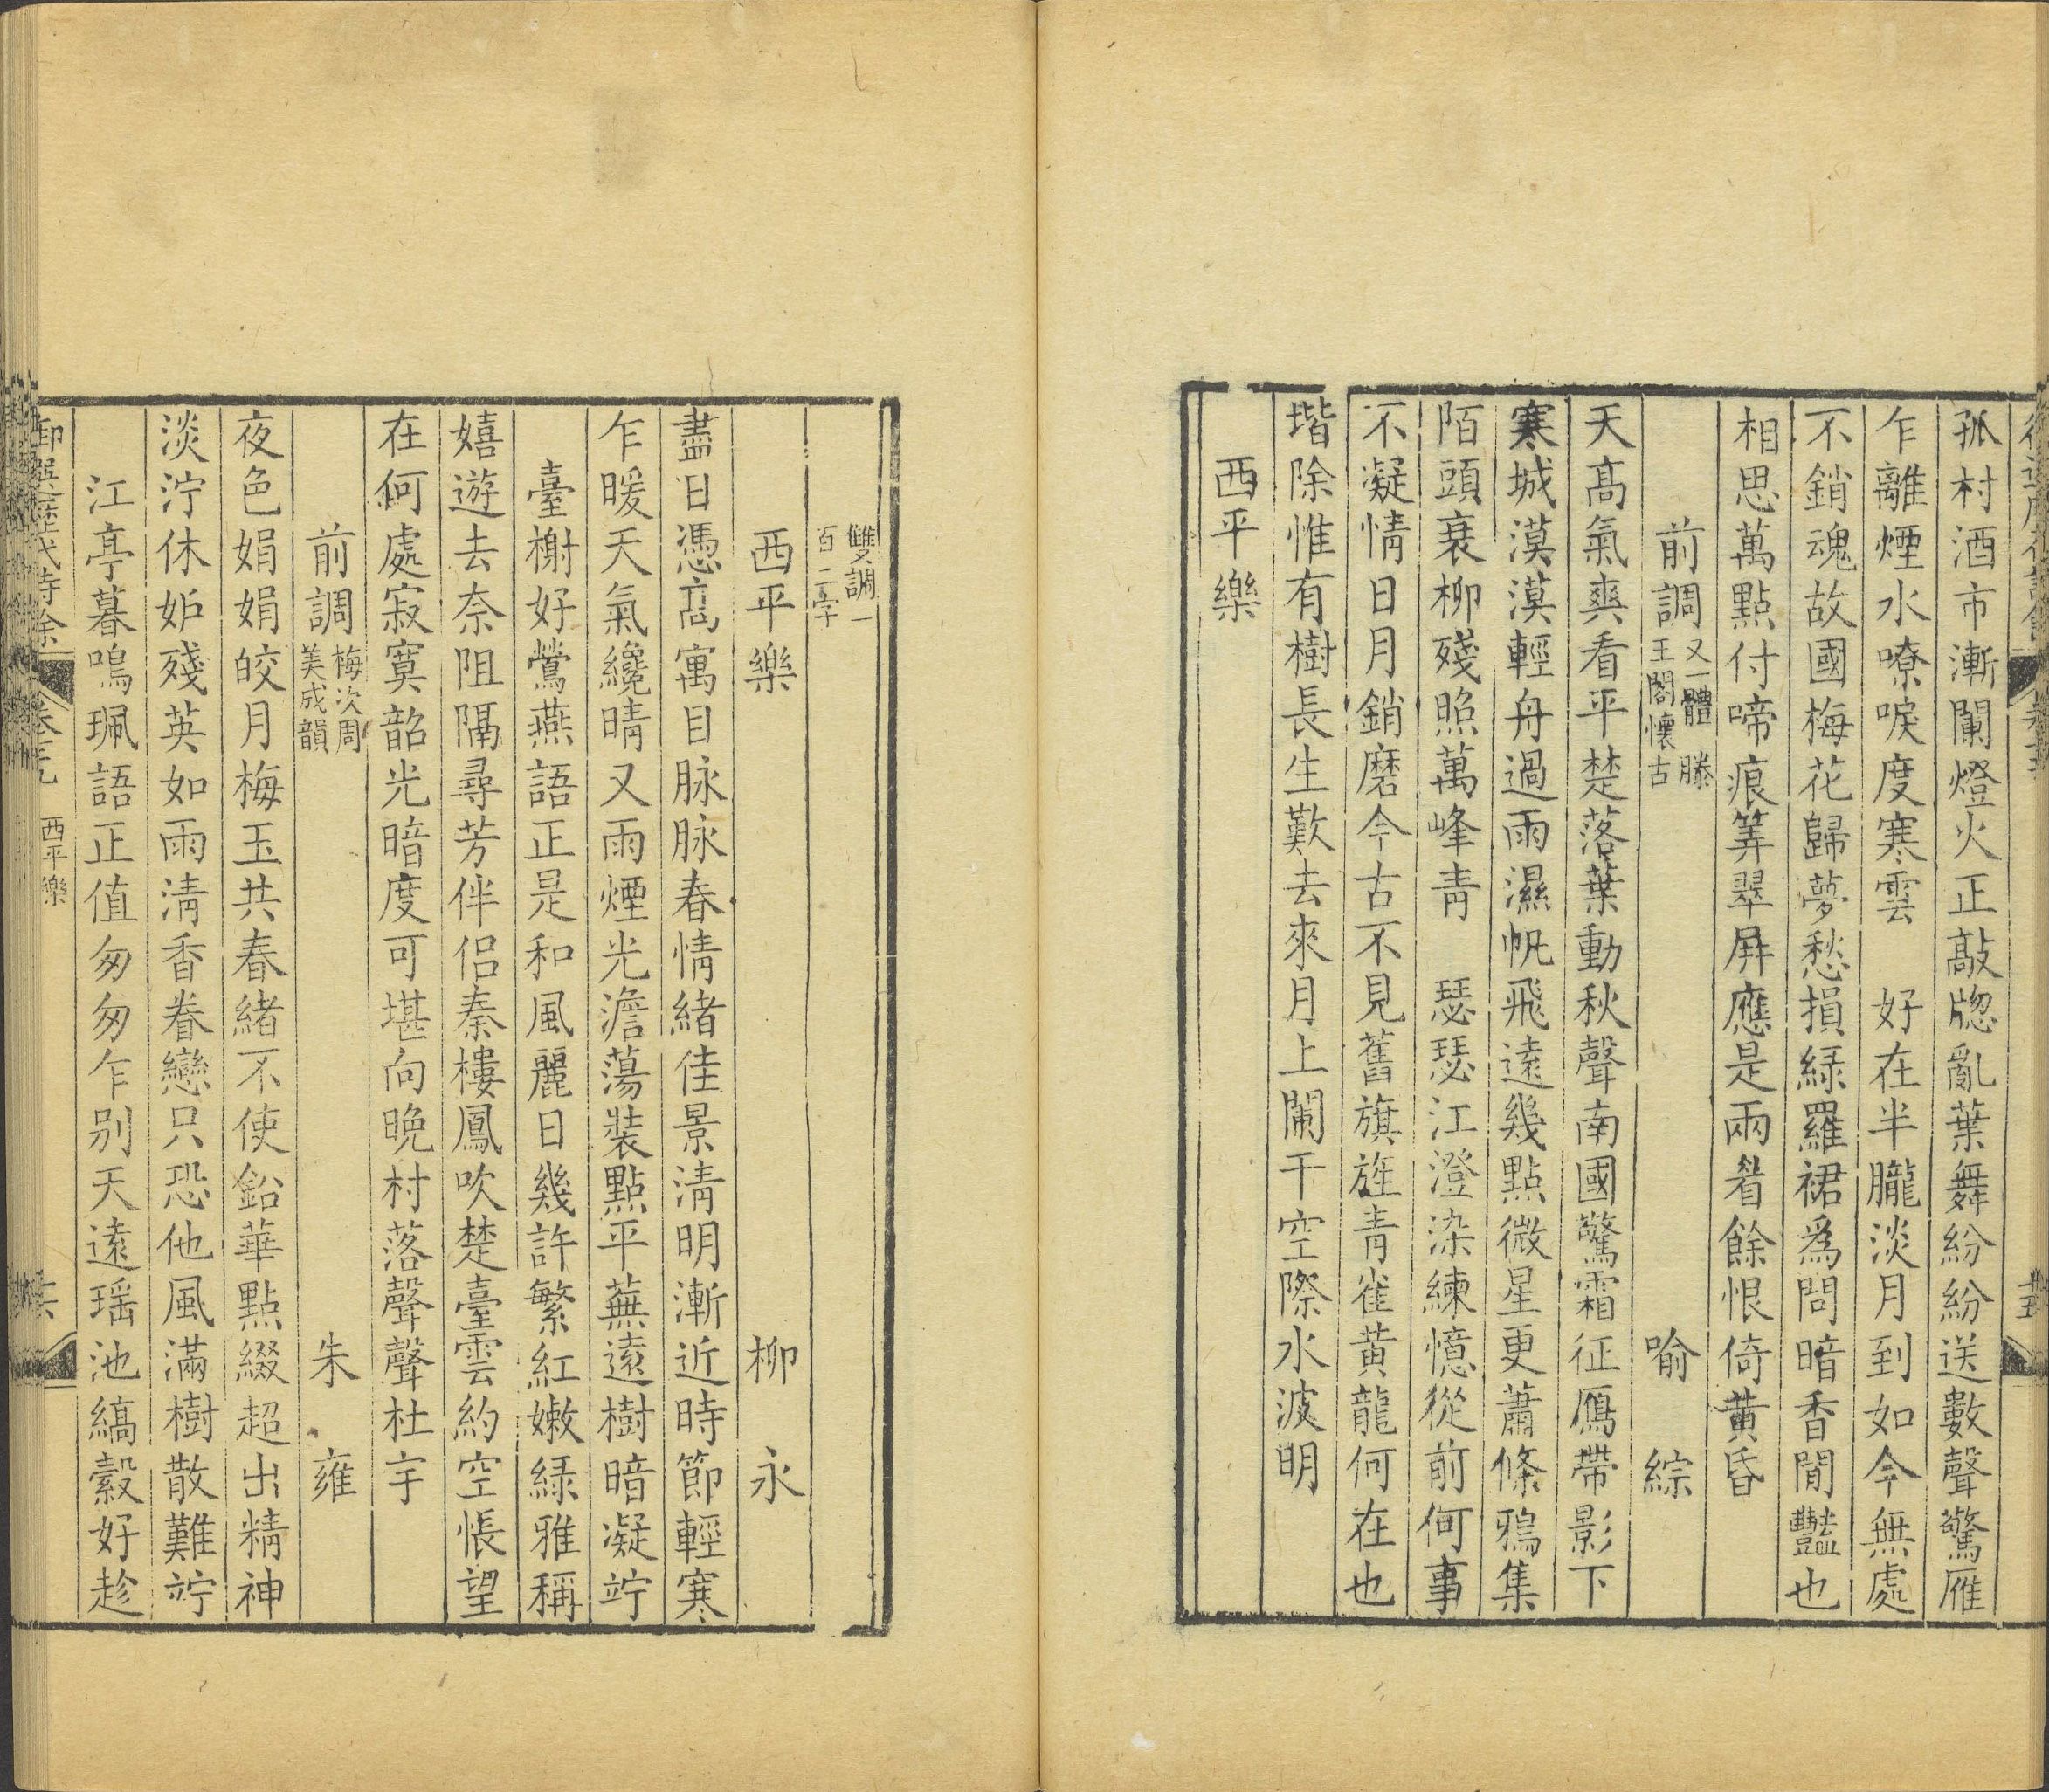 孤村酒市漸闌燈火正敲牕亂葉舞紛紛送數聲驚雁
乍離煙水嘹唳度寒雲　好在半朧淡月到如今無處
不銷魂故國梅花歸夢愁損綠羅裙爲問暗香閒豔也
相思萬點付啼痕筭翠屏應是兩眉餘恨倚黃昏
前調
又一體　滕
王閣懷古
喻　綜
天高氣爽看平楚落葉動秋聲南國驚霜征鴈帶影下
寒城漠漠輕舟過雨濕帆飛遠幾點微星更蕭條鴉集
陌頭衰柳殘照萬峰青　瑟瑟江澄染練憶從前何事
不凝情日月銷磨今古不見舊旗旌青雀黃龍何在也
堦除惟有樹長生歎去來月上闌干空際水波明
西平樂
雙調一
百二字
西平樂　柳　永
盡日憑高寓目脉脉春情緒佳景淸明漸近時節輕寒
乍暖天氣纔晴又雨煙光澹蕩裝點平蕪遠樹暗凝竚
臺榭好鶯燕語正是和風麗日幾許繁紅嫩綠雅稱
嬉遊去奈阻隔尋芳伴侶秦樓鳳吹楚臺雲約空悵望
在何處寂寞韶光暗度可堪向晚村落聲聲杜宇
前調
梅次周
美成韻
朱　雍
夜色娟娟皎月梅玉共春緒不使鉛華點綴超出精神
淡泞休妒殘英如雨淸香眷戀只恐他風滿樹散難竚
江亭暮鳴珮語正值匆匆乍別天遠瑤池縞縠好趁
西平樂